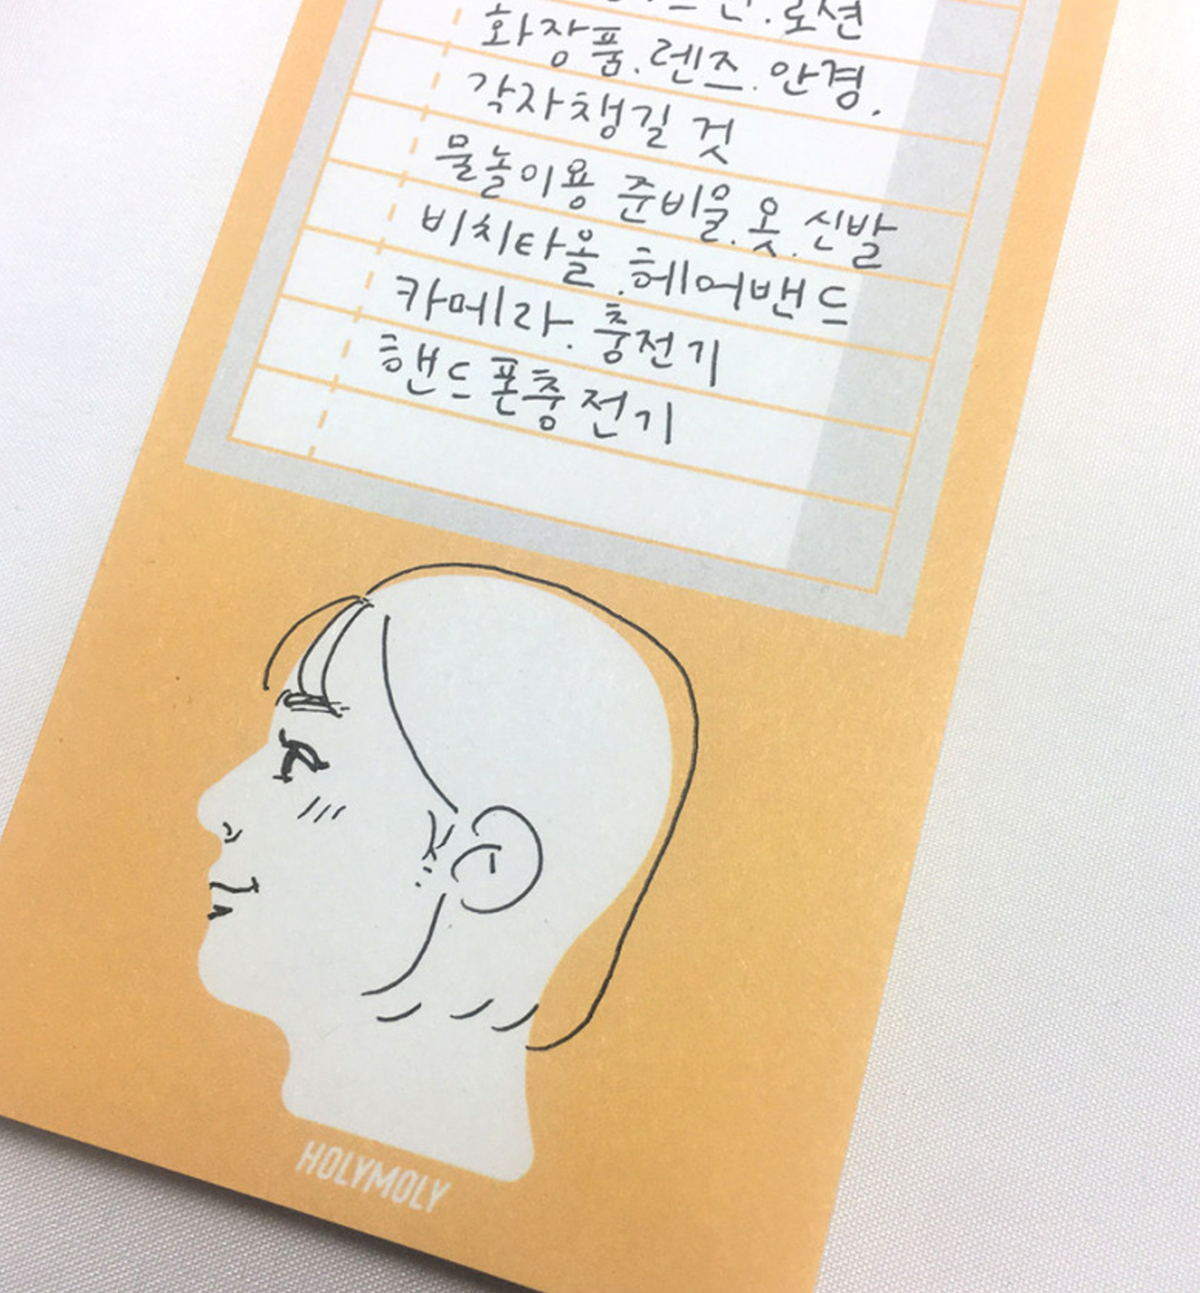 로션
화장품. 렌즈. 안경.
각자챙길 것
물놀이용 준비물. 옷. 신발
비치타올. 헤어밴드
카메라. 충전기
핸드폰충전기
HOLYMOLY